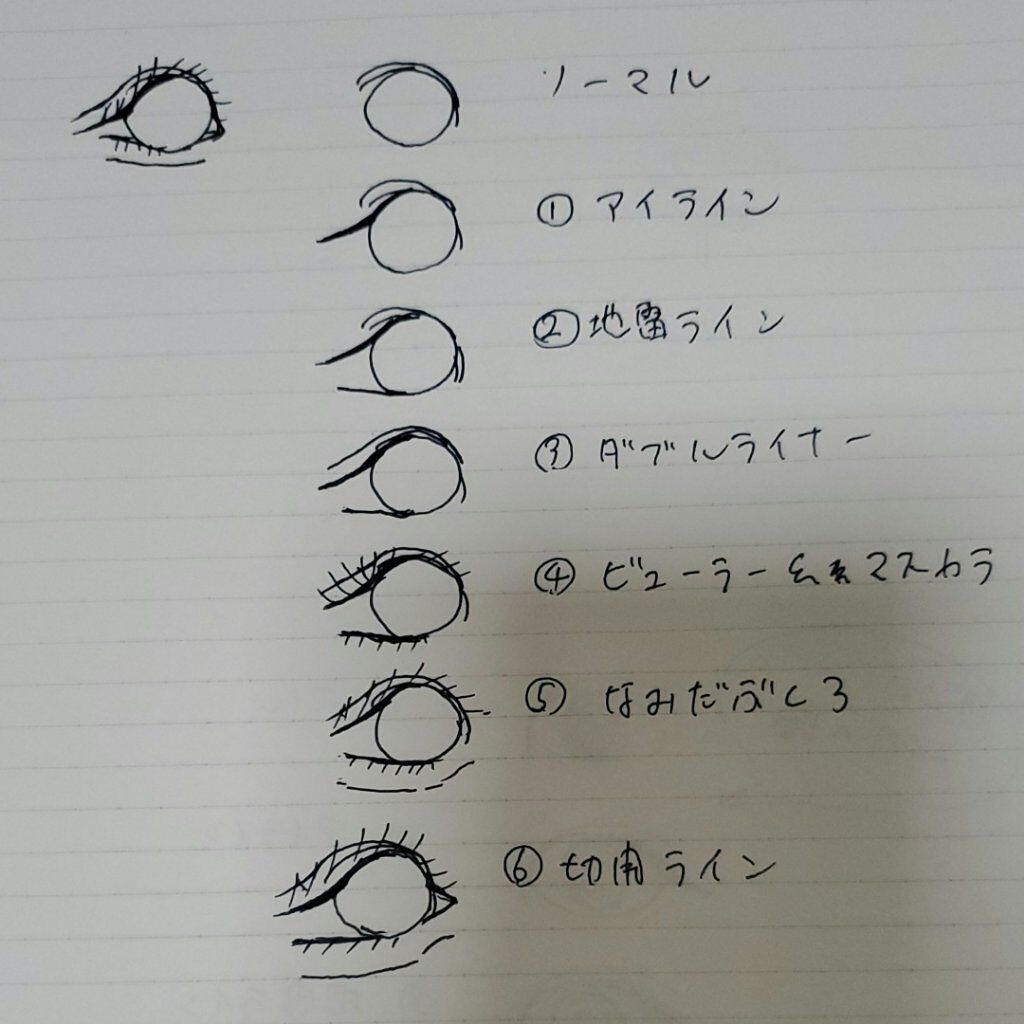 ノーマル
① アイライン
② 地雷ライン
③ ダブルライナー
④ ビューラー&マスカラ
⑤ なみだぶくろ
⑥ 切開ライン